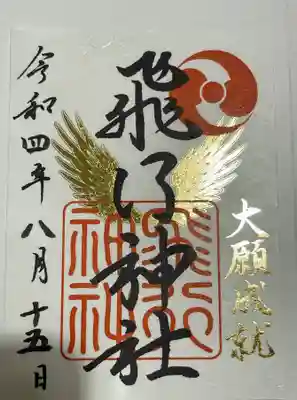 大願成就
飛行神社
飛行神社
令和四年八月十五日